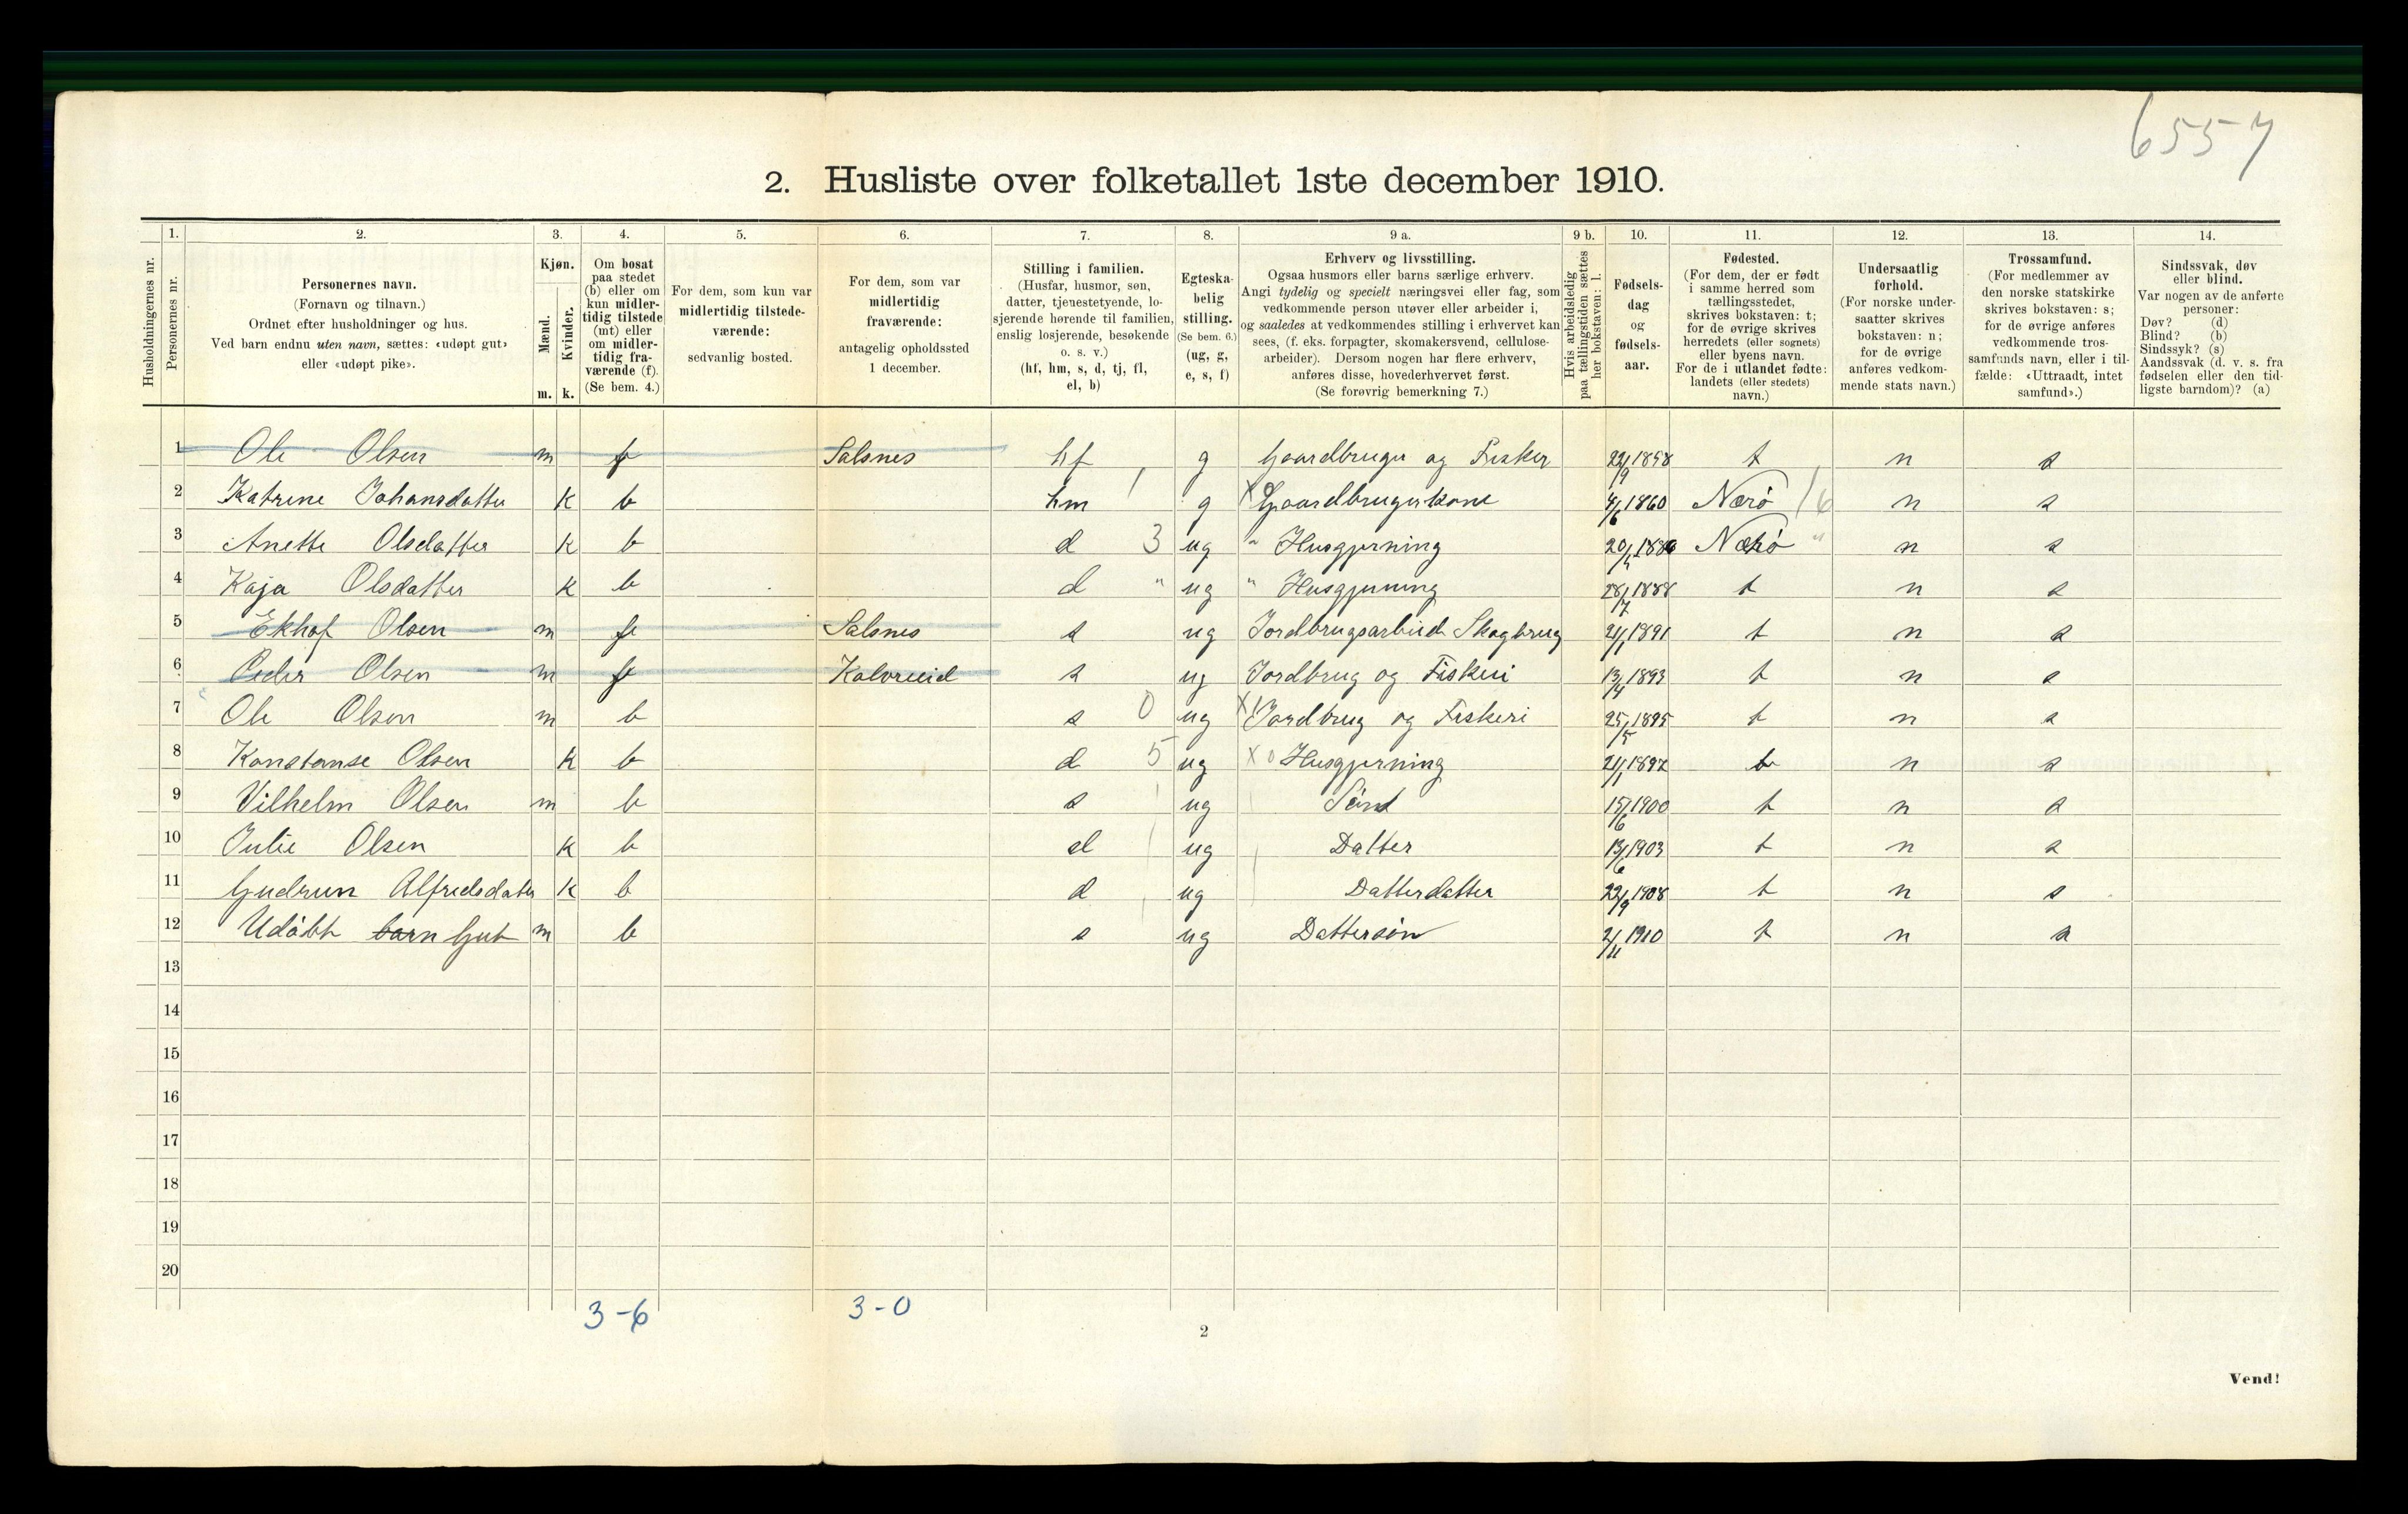 6557
2. Husliste over folketallet 1ste december 1910.
Husholdningernes nr.
1. Personernes nr.
2. Personernes navn. (Fornavn og tilnavn.) Ordnet efter husholdninger og hus. Ved barn endnu uten navn, sættes: «udøpt gut» eller «udøpt pike».
3. Kjøn. Mænd. m. Kvinder. k.
4. Om bosat paa stedet (b) eller om kun midlertidig tilstede (mt) eller om midlertidig fraværende (f). (Se bem. 4.)
5. For dem, som kun var midlertidig tilstedeværende: sedvanlig bosted.
6. For dem, som var midlertidig fraværende: antagelig opholdssted 1 december.
7. Stilling i familien. (Husfar, husmor, søn, datter, tjenestetyende, losjerende hørende til familien, enslig losjerende, besøkende o. s. v.) (hf, hm, s, d, tj, fl, el, b)
8. Egteskabelig stilling. (Se bem. 6.) (ug, g, e, s, f)
9 a. Erhverv og livsstilling. Ogsaa husmors eller barns særlige erhverv. Angi tydelig og specielt næringsvei eller fag, som vedkommende person utøver eller arbeider i, og saaledes at vedkommendes stilling i erhvervet kan sees, (f. eks. forpagter, skomakersvend, cellulosearbeider). Dersom nogen har flere erhverv, anføres disse, hovederhvervet først. (Se forøvrig bemerkning 7.)
9 b. Hvis arbeidsledig paa tællingstiden sættes her bokstaven: l.
10. Fødselsdag og fødselsaar.
11. Fødested. (For dem, der er født i samme herred som tællingsstedet, skrives bokstaven: t; for de øvrige skrives herredets (eller sognets) eller byens navn. For de i utlandet fødte: landets (eller stedets) navn.)
12. Undersaatlig forhold. (For norske undersaatter skrives bokstaven: n; for de øvrige anføres vedkommende stats navn.)
13. Trossamfund. (For medlemmer av den norske statskirke skrives bokstaven: s; for de øvrige anføres vedkommende trossamfunds navn, eller i tilfælde: «Uttraadt, intet samfund».)
14. Sindssvak, døv eller blind. Var nogen av de anførte personer: Døv? (d) Blind? (b) Sindssyk? (s) Aandssvak (d. v. s. fra fødselen eller den tidligste barndom)? (a)
1 Ole Olsen m f Salsnes hf g Gaardbruger og Fisker 22/9 1858 t n s
2 Katrine Johansdatter k b hm 1 g X Gaardbrugerkone 4/6 1860 Nærö n s
3 Anette Olsdatter k b d 3 ug " Husgjerning Nærö " n s
4 Kaja Olsdatter k b d " ug " Husgjerning 28/7 1888 t n s
5 Ekhof Olsen m f Salsnes s ug Jordbrugsarbeide Skogbrug 21/1 1891 t n s
6 Peder Olsen m f Kalvreid s ug Jordbrug og Fiskeri 13/4 1893 t n s
7 Ole Olsen m b s 0 ug X Jordbrug og Fiskeri 25/5 1895 t n s
8 Konstanse Olsen k b d 5 ug X 0 Husgjerning 21/1 1897 t n s
9 Vilhelm Olsen m b s ug Sönd 15/6 1900 t n s
10 Julie Olsen k b d ug Datter 13/6 1903 t n s
11 Gudrun Alfredsdater k b d ug Datterdatter 22/9 1908 t n s
12 Udöbt barn Gut m b s ug Dattersön 2/11 1910 t n s
13
14
15
16
17
18
19
20
3-6 3-0
2
Vend!